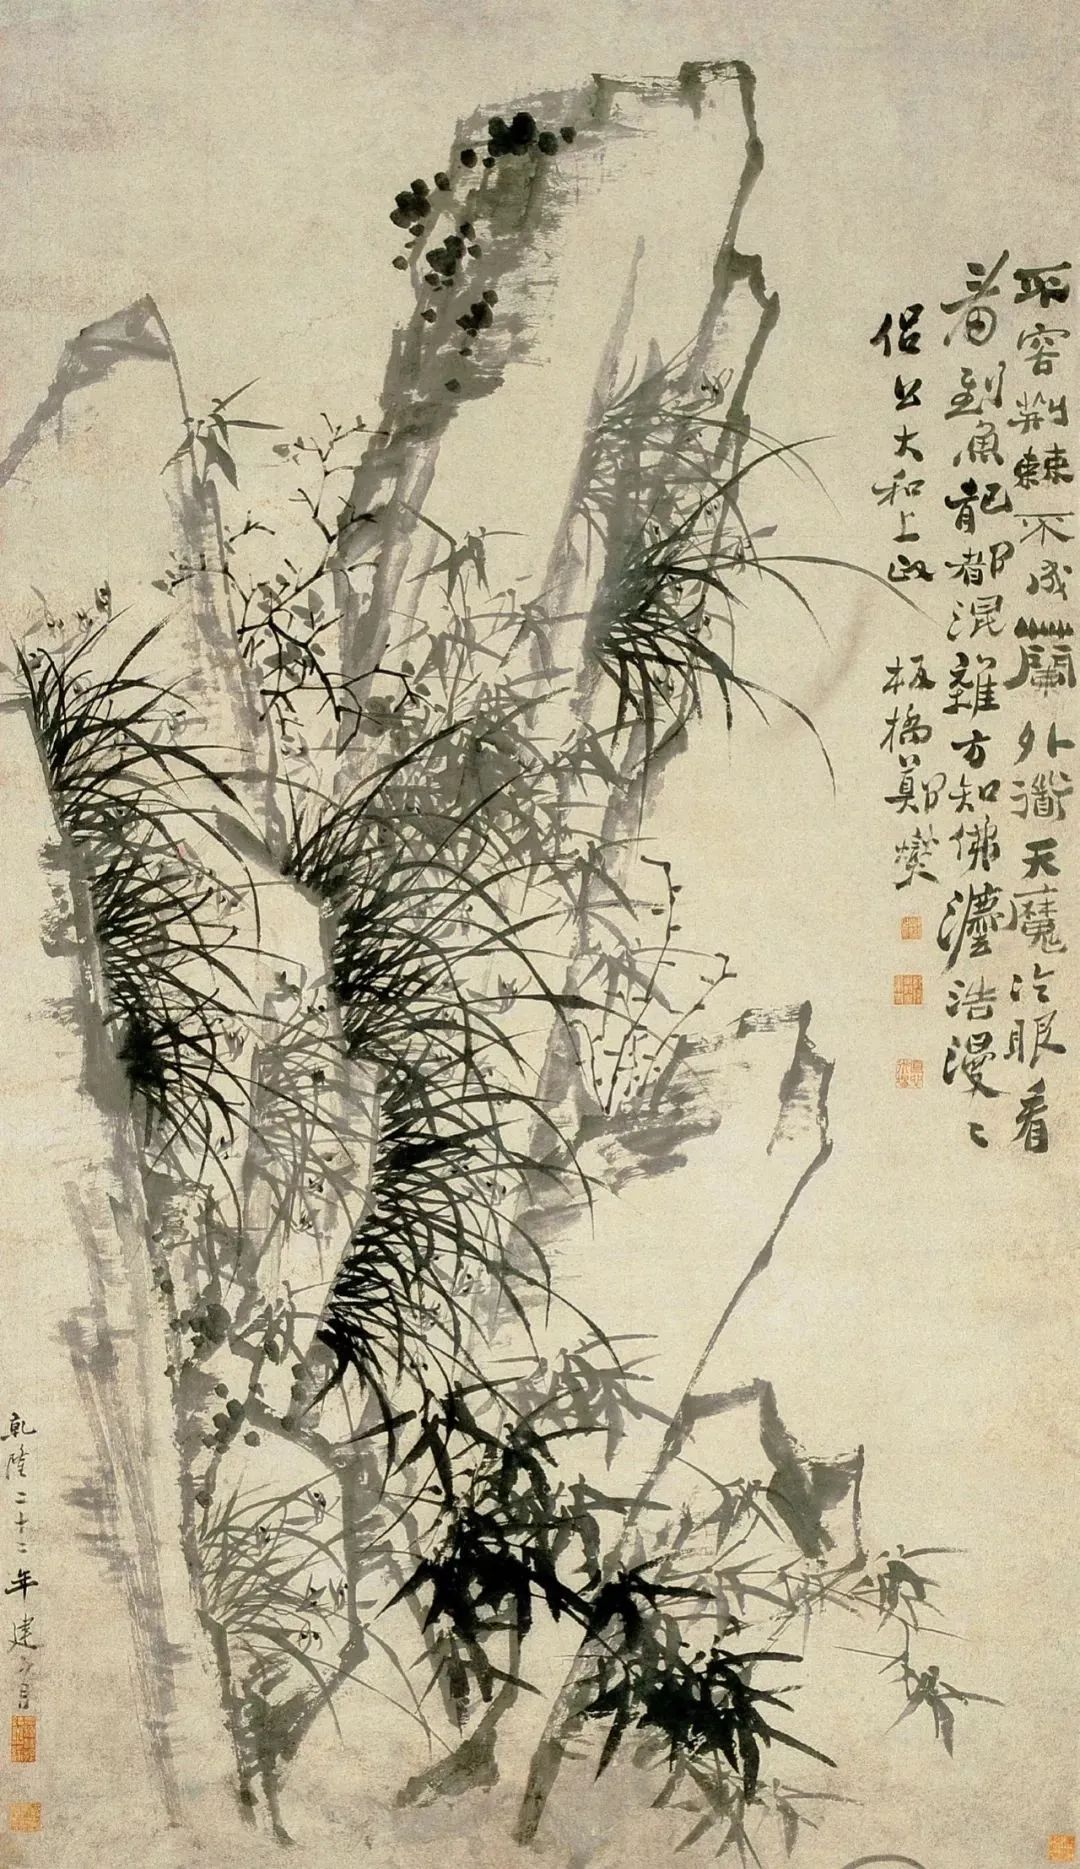 不容荆棘不成蘭外道天魔冷眼看
看到魚龍都混雜方知佛法浩漫〻
侣公大和上政
板橋鄭燮
乾隆二十二年建子月